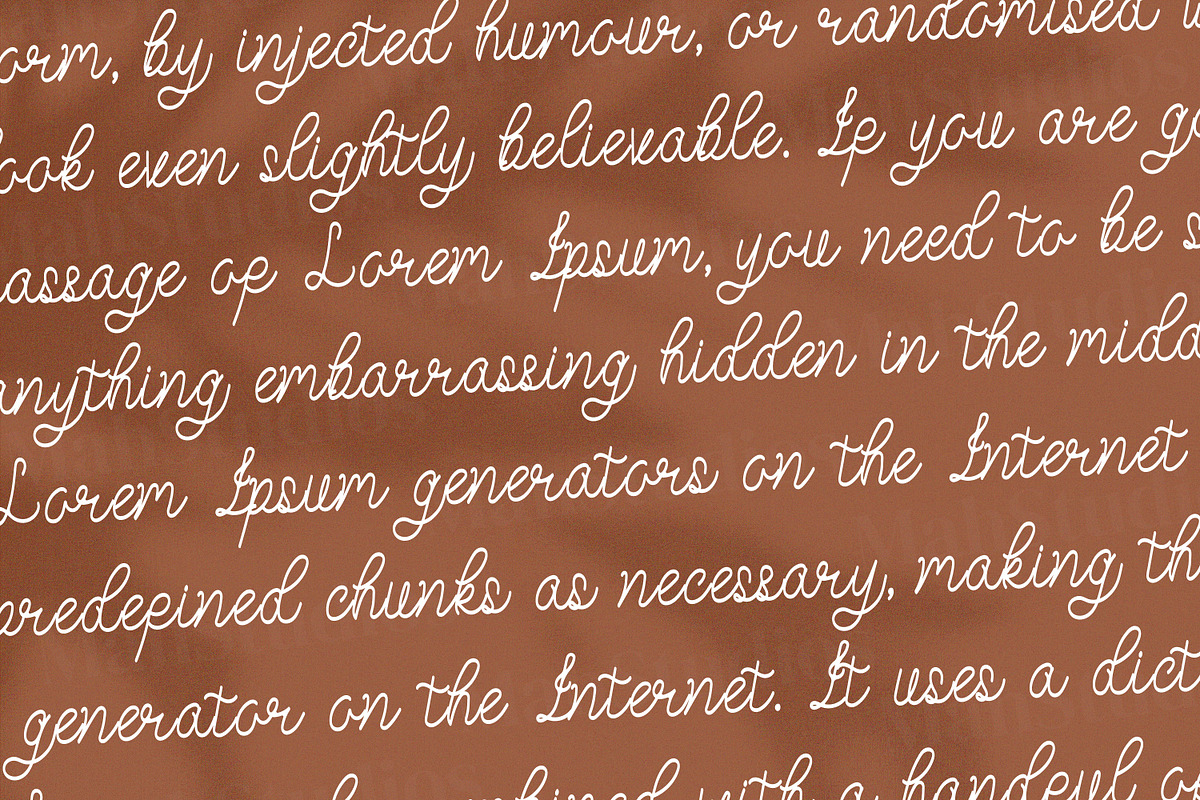 orm, by injected humour, or randomised
ook even slightly believable. If you are g
assage of Lorem Ipsum, you need to be s
anything embarrassing hidden in the midd
Lorem Ipsum generators on the Internet
predefined chunks as necessary, making th
generator on the Internet. It uses a dict
combined with a handful o
MahStudios